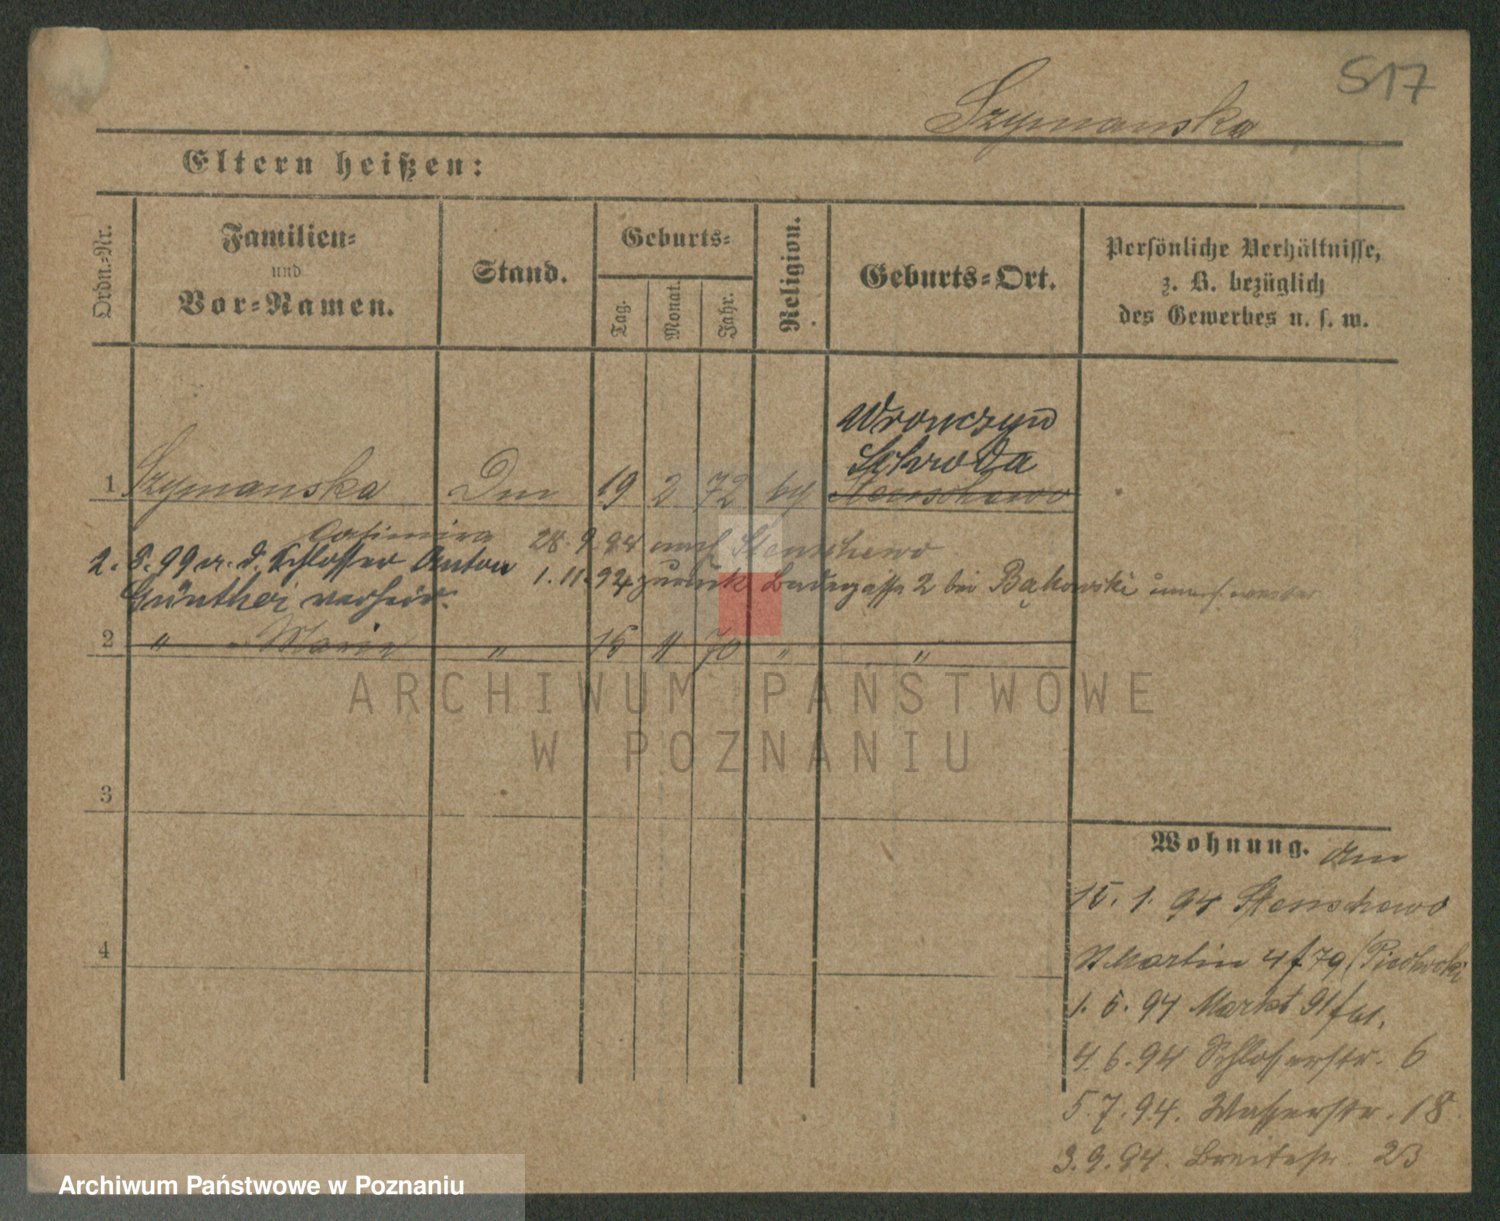 517
Szymanska
Eltern heißen:
Ordn.-Nr.
Familien-
und
Vor-Namen.
Stand.
Geburts-
Tag.
Monat.
Jahr.
Religion.
Geburts-Ort.
Persönliche Verhältnisse,
z. B. bezüglich
des Gewerbes u. s. w.
Wronczyn
Schroda
1 Szymanska 19 2 72 Stenschewo
Casimira 28. 9. 94 nach Stenschewo
2. 8. 99 v. d. Schlosser Anton 1. 11. 94 zurück Badegasse 2 bei Bąkowski
Günther verheir.
2 " " Marie " 15 11 70 " "
ARCHIWUM PAŃSTWOWE
W POZNANIU
3
4
Wohnung. Am
15. 1. 94 Stenschewo
St Martin 4 f 79
1. 5. 94 Markt 91
4. 6. 94 Schlosserstr. 6
5. 7. 94. Wasserstr. 18
3. 9. 94. Breitestr. 23
Archiwum Państwowe w Poznaniu